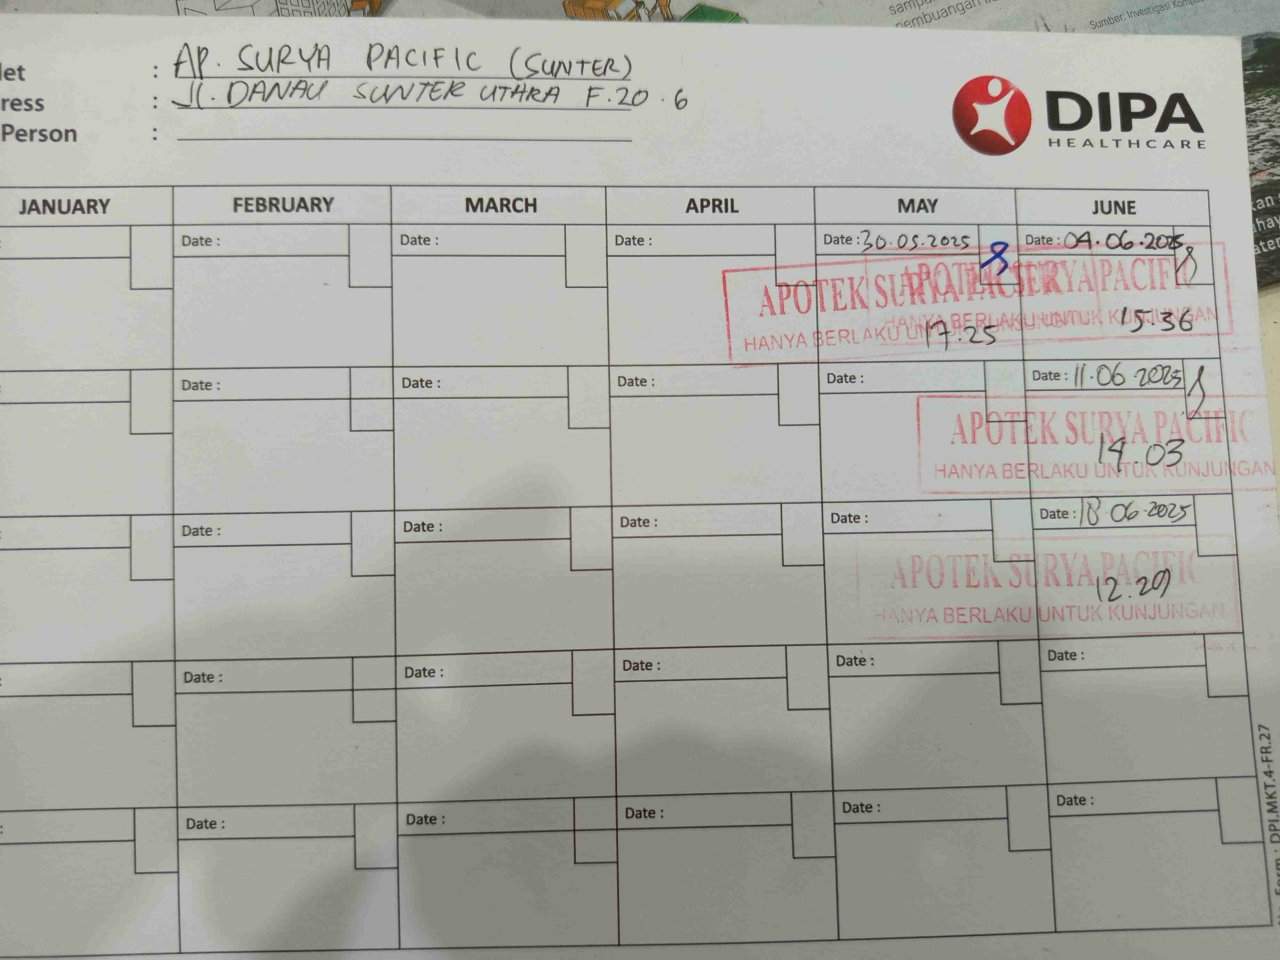 sampu
pembuangan
Sumber: Investigasi Komp
let : AP. SURYA PACIFIC (SUNTER)
ress : Jl. DANAU SUNTER UTARA F.20.6
Person :
DIPA
HEALTHCARE
JANUARY FEBRUARY MARCH APRIL MAY JUNE
: Date : Date : Date : Date : 30.05.2025 Date : 04.06.2025
APOTEK SURYA PACIFIC APOTEK SURYA PACIFIC
HANYA BERLAKU UNTUK HANYA BERLAKU UNTUK KUNJUNGAN
17.25 15.36
Date : Date : Date : Date : Date : 11.06.2025
APOTEK SURYA PACIFIC
HANYA BERLAKU UNTUK KUNJUNGAN
14.03
Date : Date : Date : Date : Date : 18.06.2025
APOTEK SURYA PACIFIC
HANYA BERLAKU UNTUK KUNJUNGAN
12.29
: Date : Date : Date : Date : Date :
: Date : Date : Date : Date : Date :
Form : DPI.MKT.4-FR.27